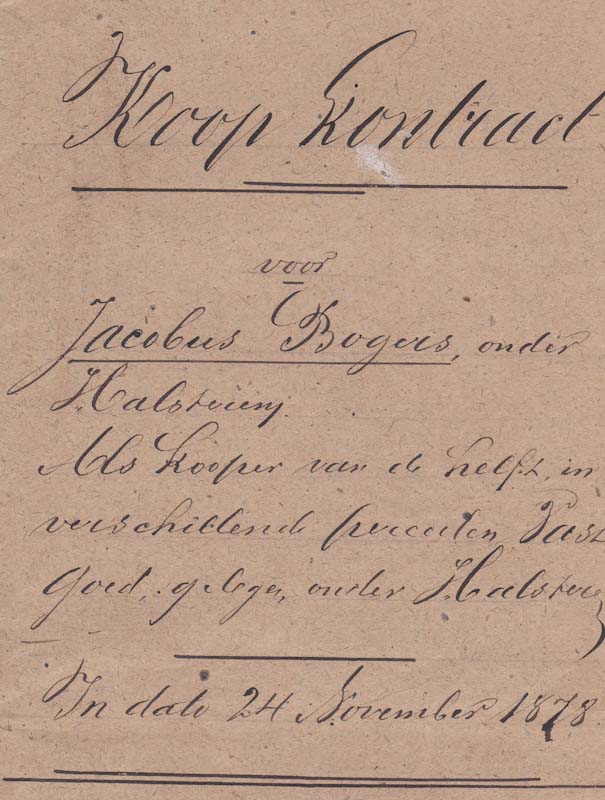 Koop Kontract
voor
Jacobus Bogers, onder
Halsteren.
Als kooper van de helft, in
verschillende perceelen Vast
Goed, gelegen onder Halsteren
In dato 24 November 1878.